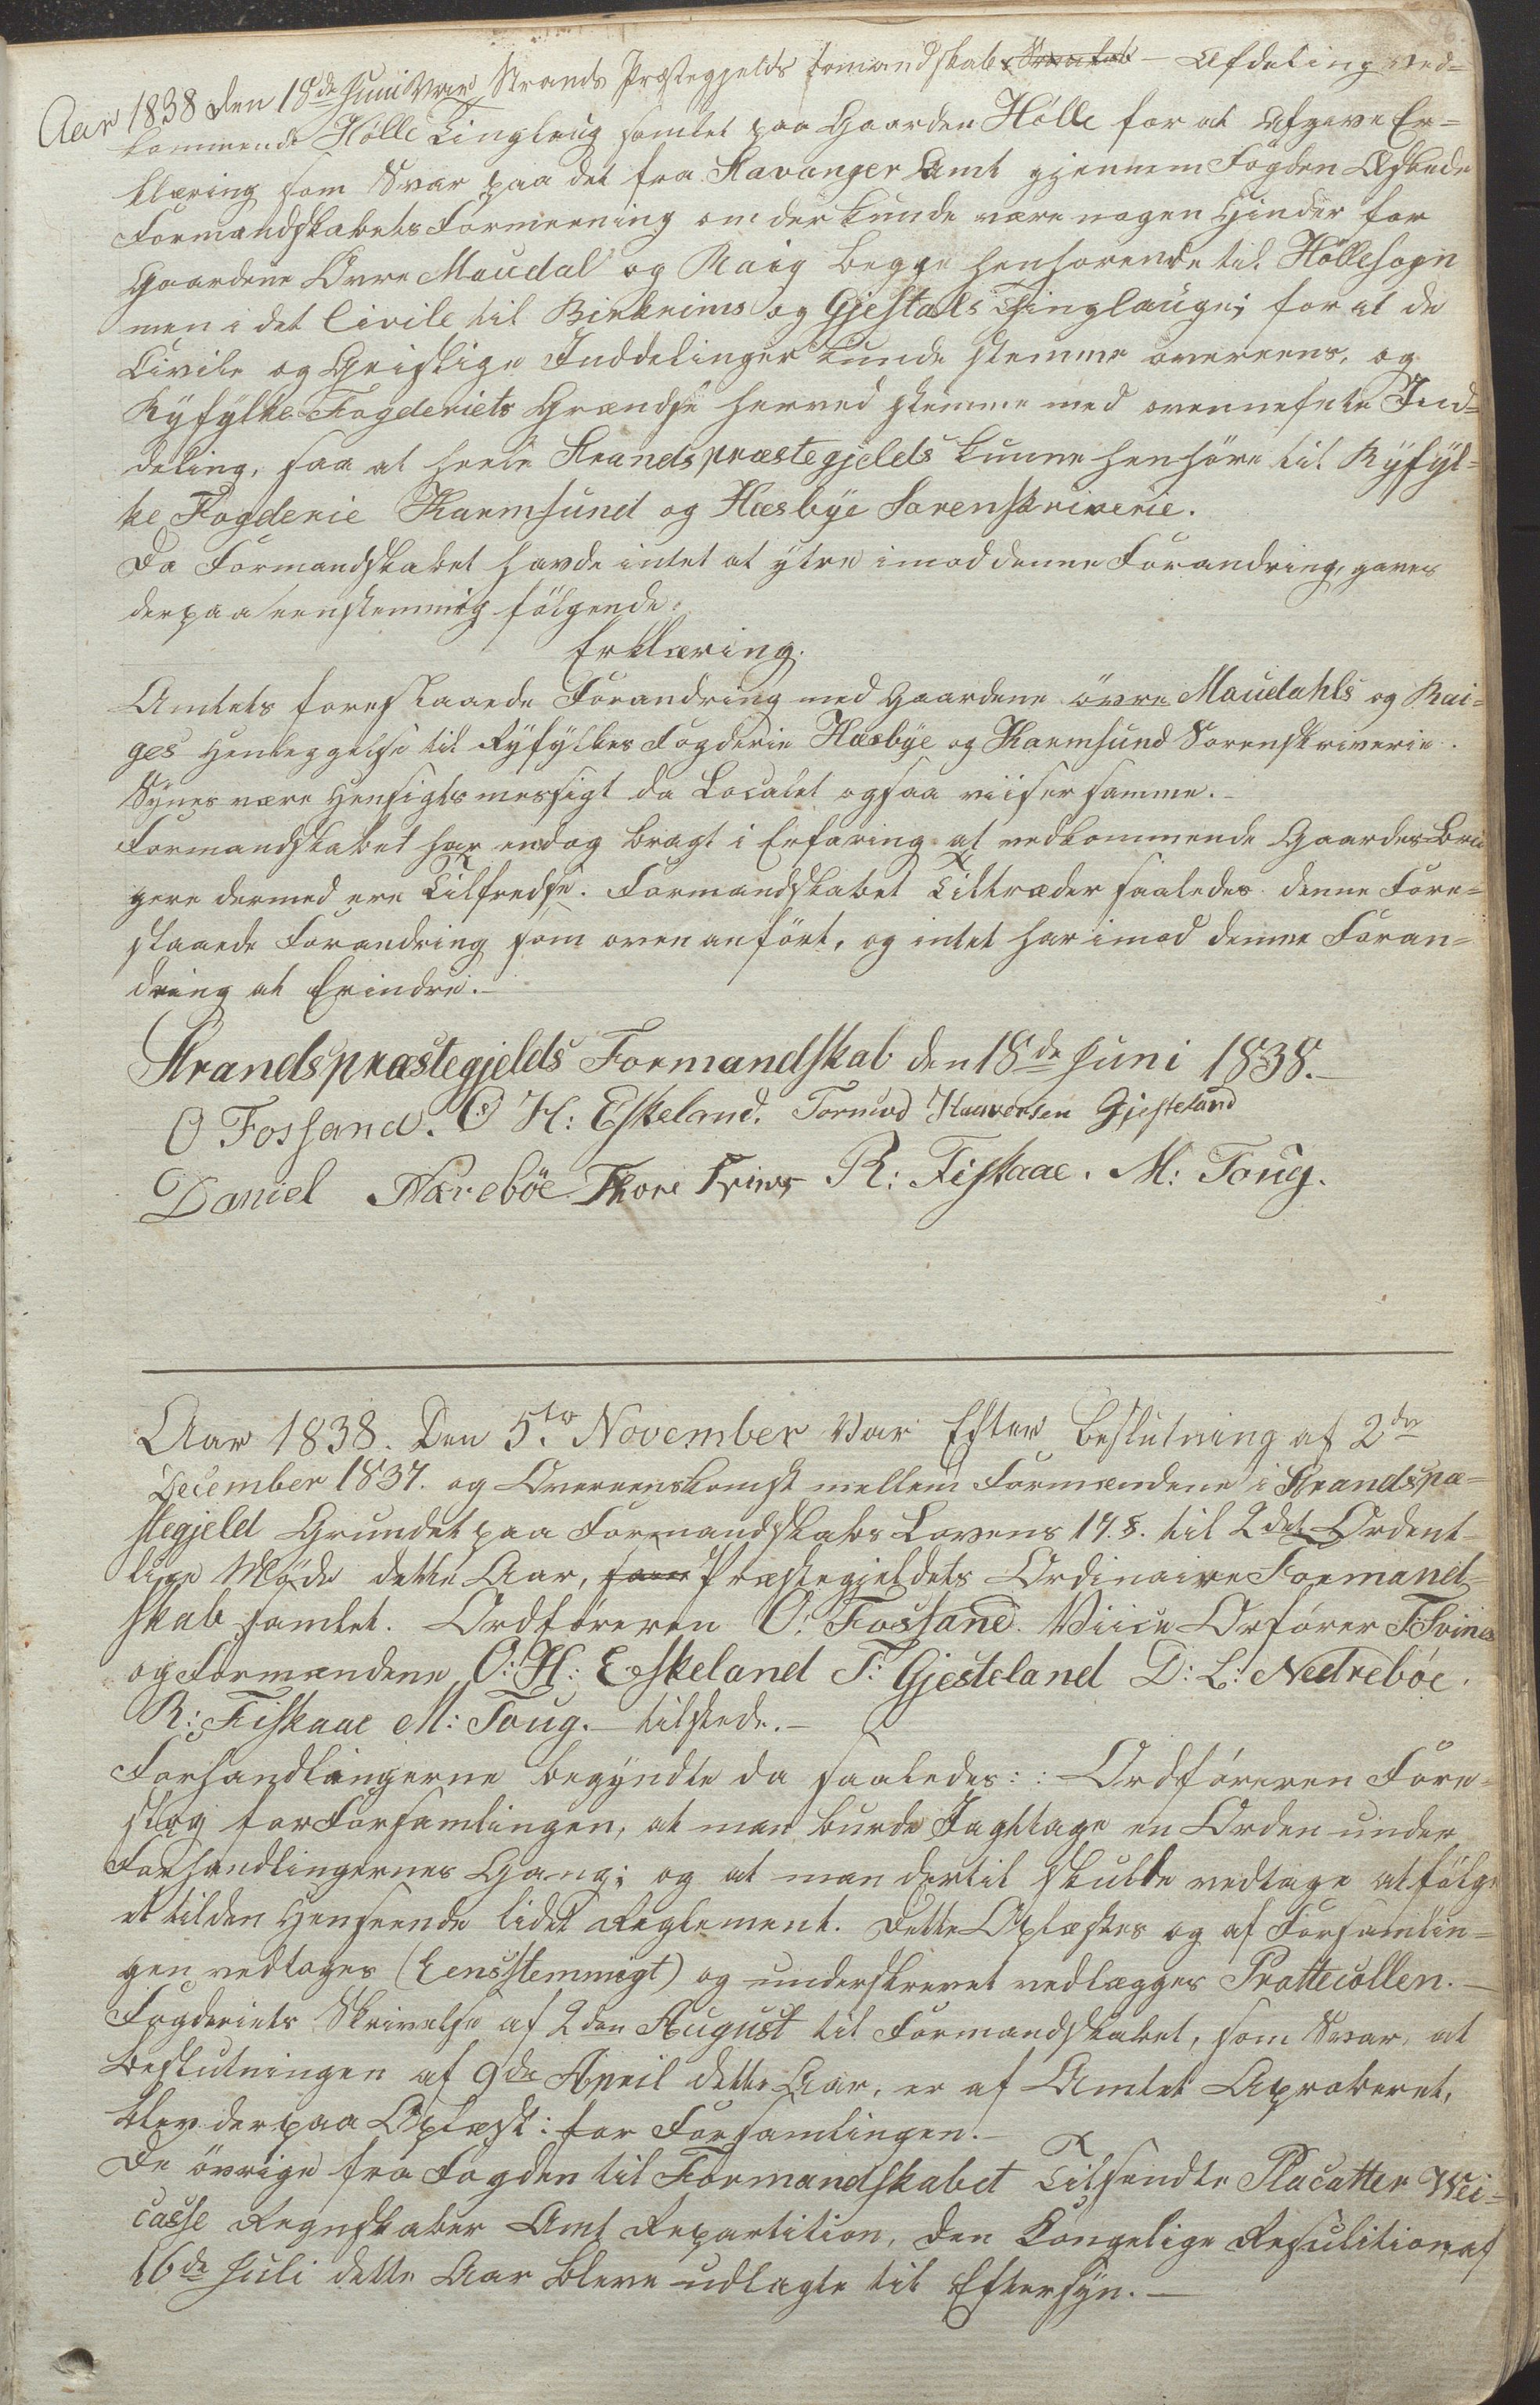 Aar 1838 den 18de Juni Var Strands Præstegjelds Formandskabs Afdeling ved-
kommende Hölle Tinglaug samlet paa Gaarden Hölle for at Afgive Er-
klæring som Svar paa det fra Stavanger Amt gjennem Fogden Æskede
Formandskabets Formeening om der kunde være nogen Hinder for
Gaardene Övre Maudal og Raig begge henhörende til Höllesogn
men i det Civile til Birkrims og Gjestals Thinglauge; for at de
Civile og Geistlige Inddelinger kunde stemme overeens, og
Ryfylke Fogderiets Grændse herved stemme med ovennefnte Ind-
deling, saa at heele Strandspræstegjelds kunne henhöre til Ryfyl-
ke Fogderie Karmsund og Hæsbye Sorenskriverie.
Da Formandskabet havde intet at ytre imod denne Forandring, gaves
derpaa eenstemmig fölgende:
Erklæring.
Amtets foreslaaede Forandring med Gaardene övre Maudahls og Rai-
ges Henleggelse til Ryfylkes Fogderie Hæsbye og Karmsund Sorenskriverie.
Synes være Hensigtsmessigt da Localet ogsaa viiser samme.-
Formandskabet har endog bragt i Erfaring at vedkommende Gaardes Bru-
gere dermed ere Tilfredse. Formandskabet Tiltræder saaledes denne Fore-
slaaede Forandring som oven anfört, og intet har imod denne Foran-
dring at Erindre.-
Strandspræstegjelds Formandskab den 18de Juni 1838.-
O Fossand. O H: Eskeland. Tormod Haavorsen Gjesteland
Daniel Næreböe Thore R: Fiskaae. M: Toug.
Aar 1838. Den 5te November Var Efter Beslutning af 2den
December 1837. og Overeenskomst mellem Formændene i Strandspræ-
stegjeld Grundet paa Formandskabs Lovens 14.§. til 2det Ordent-
lige Möde dette Aar, Præstegjeldets Ordinaire Formand-
skab samlet. Ordföreren O: Fossand. Viice Orförer T: Svines
og Formændene O: H: Eskeland T: Gjesteland D: L: Nedrebóe.
R: Fiskaae M: Toug.- tilstede.-
Forhandlingerne begyndte da saaledes:: Ordföreren Fore-
slog for Forsamlingen, at man burde Iagttage en Orden under
Forhandlingernes Gang; og at man dertil skulde vedtage at fölge
et til den Henseende lidet Reglement. Dette Oplæstes og af Forsamlin-
gen vedtoges (Eensstemmigt) og underskrevet vedlægges Prottecollen.-
Fogderiets Skrivelse af 2den August til Formandskabet, som Svar, at
Beslutningen af 9de April dette Aar, er af Amtet Aproberet,
blev derpaa Oplæst: for Forsamlingen.-
De övrige fra Fogden til Formandskabet Tilsendte Placatter Vei-
casse Regnskaber Amt Repartition, den Kongelige Resulition af
16de Juli dette Aar bleve udlagte til Eftersyn.-